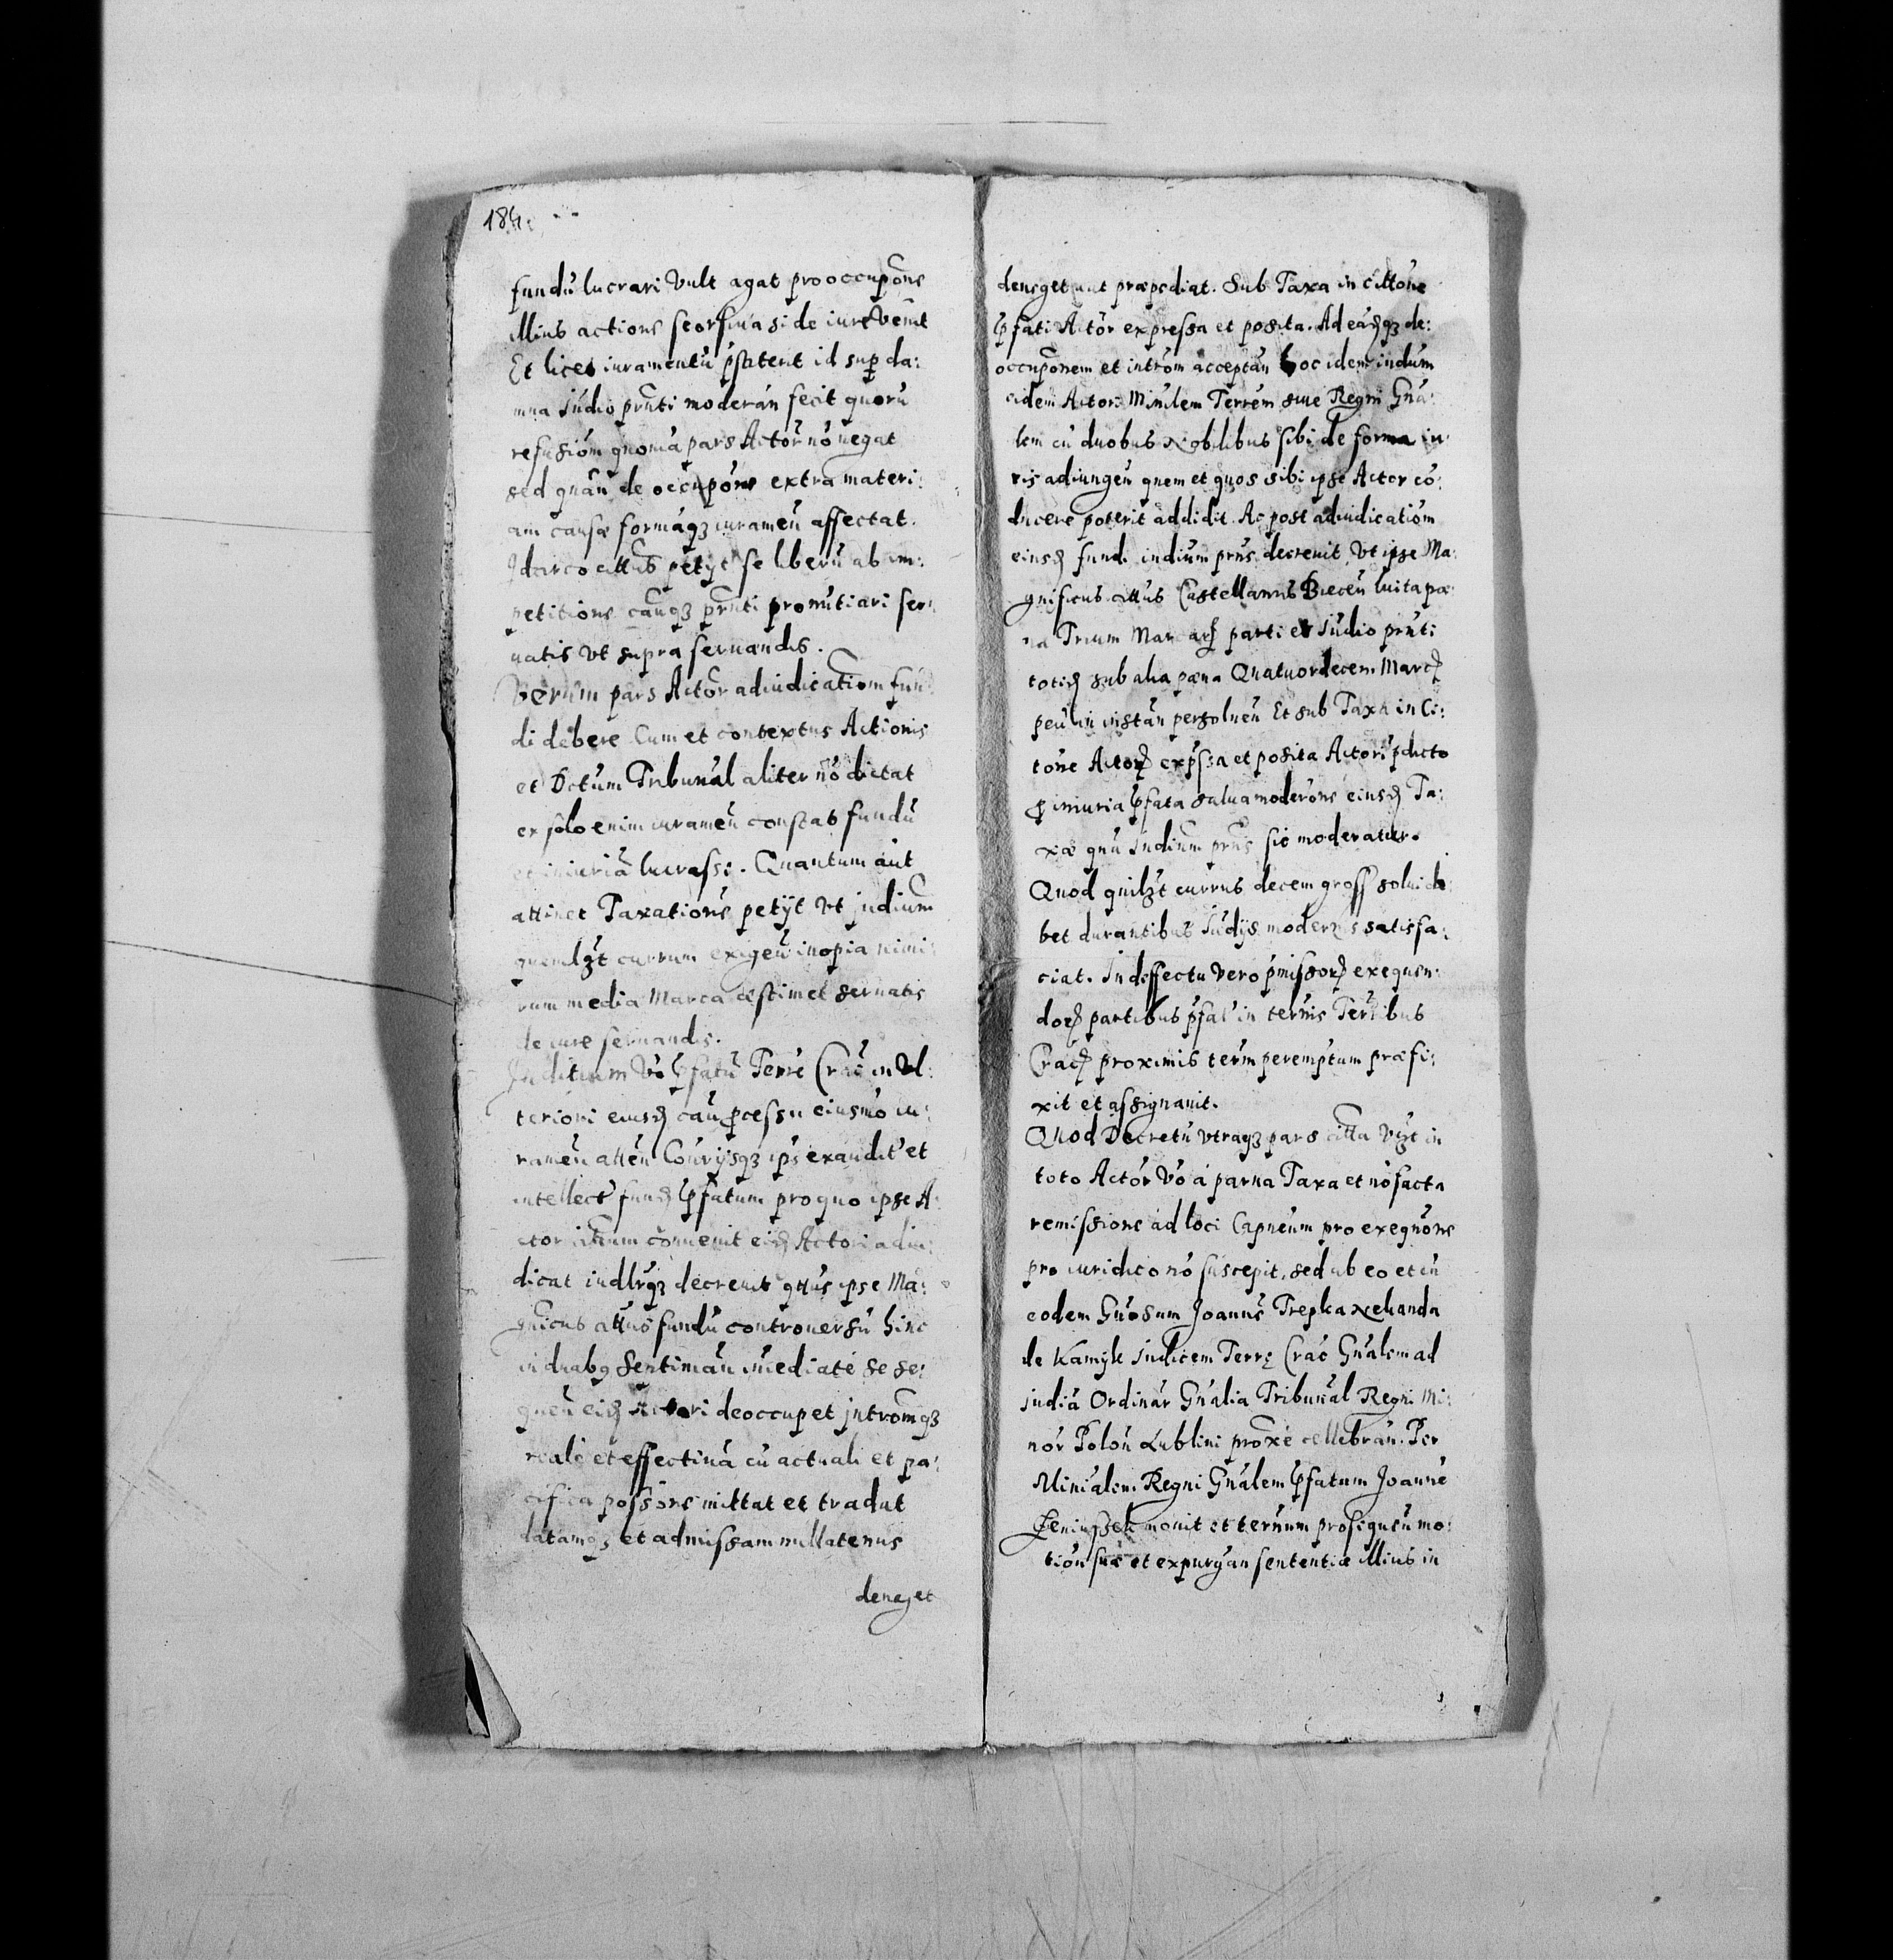 fundū lucrari vult agat pro occupōne
illius actione seorsiua si de iure venit
Et licet iuramentū pstiterit id sup da:
mna Iudio prnti moderan fecit quorū
refusiōm quoniā pars Actor nō negat
sed quān de occupōne extra materi:
am causæ formāqz iuramen affectat.
Idarco cittus petijt se liberū ab im:
petitione cauqz prnti pronūtiari ser:
uatis vt supra seruandis.
Verum pars Actor adiudicatiom fun:
di debere Cum et contextus Actionis
et Dctum Tribunal aliter nō dictat
ex solo enim iuramen constat fundū
et iniuriā lucrassi. Quantum aut
attinet Taxatione petijt vt judium
quemlzt currum exigen inopia nimi:
rum media Marca æstimet seruatis
de iure seruandis.
Juditium vō Ipsatū Terre Crac in vl:
teriori eiusd cau pcessu eiusmō iu:
ramen atten Conrijsqz ips exaudit et
intellect fund Ipfatum pro quo ipse A:
ctor cittum conuenit eid Actori adiu:
dicat indlrqz decreuit qttus ipse Ma:
gnicus cittus fundū controuersū hinc
in duabq Septiman imediatè se se:
quen eid Actori deoccupet jntromqz
realē et effectiuā cū actuali et pa:
cifica possōne mittat et tradat
datamqz et admissam nullatenus
deneget
deneget aut præpediat. Sub Taxa in cittōne
Ipfati Actor expressa et posita. Ad eāsqz de:
occupōnem et intrōm acceptan hoc idem iudium
eidem Actori Minilem Terrem siue Regni Gna:
lem cū duobus Nobilibus sibi de forma iu:
ris adiungen quem et quos sibi ipse Actor cō:
ducere poterit addidit. Ac post adiudicatiōm
eiusd fundi iudium prns decreuit Vt ipse Ma:
gnificus cittus Castellanus Biecen luita pœ:
na Trium Marcar parti et Iudio prnti
totid sub alia pæna Quatuordecem Marc
pecū in instan persoluen Et sub Taxa in Ci:
tōne Actor expssa et posita Actori pdicto
p iniuria Ipfata salua moderōne eiusd Ta:
xæ qnu Iudium prns sic moderatur.
Quod quilzt currus decem gross solui de:
bet durantibus Iudijs modernis satisfa:
ciat. In deffectu vero pmissor exequen:
dor partibus pfat in ternis Terribus
Crac proximis term peremptum præfi:
xit et assignauit.
Quod Decretū vtraqz pars citta vizt in
toto Actor vō à parua Taxa et nō facta
remissione ad loci Capneum pro exequōne
pro iuridico nō suscepit, sed ab eo et cū
eodem Gnosum Joannē Trepka Nekanda
de Kamyk Iudicem Terrę Crac Gnalem ad
iudiā Ordinar Gnalia Tribunal Regni Mi:
nor Polon Lublini proxē cellebran. Per
Minialem Regni Gnalem Ipfatum Joannē
mouit et ternum prosequen mo:
tion suæ et expurgan sententiæ illius in